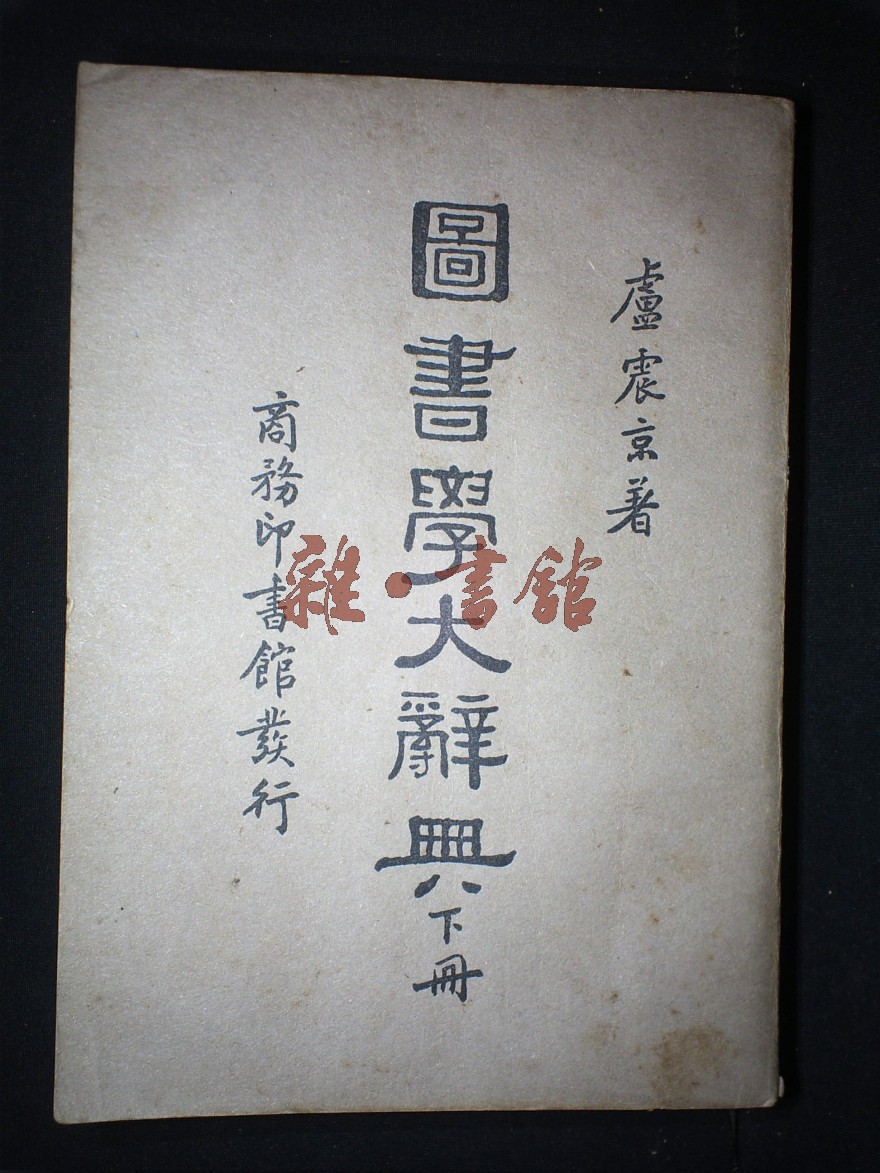 盧震京著
圖書學大辭典下冊
商務印書館發行
雜·書館